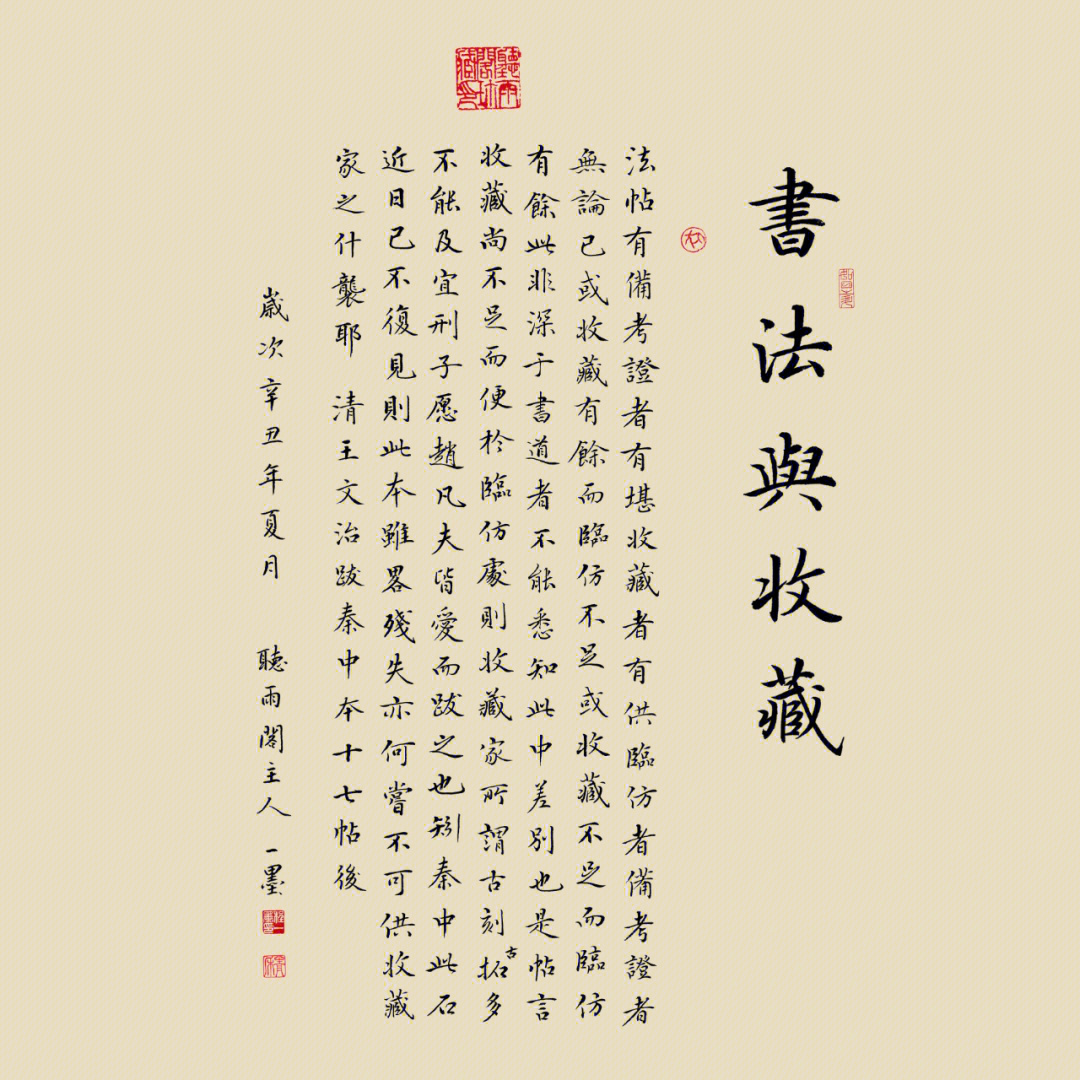 書法與收藏
法帖有備考證者有堪收藏者有供臨仿者備考證者
無論已或收藏有餘而臨仿不足或收藏不足而臨仿
有餘此非深于書道者不能悉知此中差別也是帖言
收藏尚不足而便於臨仿處則收藏家所謂古刻拓古多
不能及宜刑子愿趙凡夫皆愛而跋之也矧秦中此石
近日已不復見則此本雖畧殘失亦何嘗不可供收藏
家之什襲耶 清王文治跋秦中本十七帖後
歲次辛丑年夏月 聽雨閣主人一墨
聽雨閣林藏